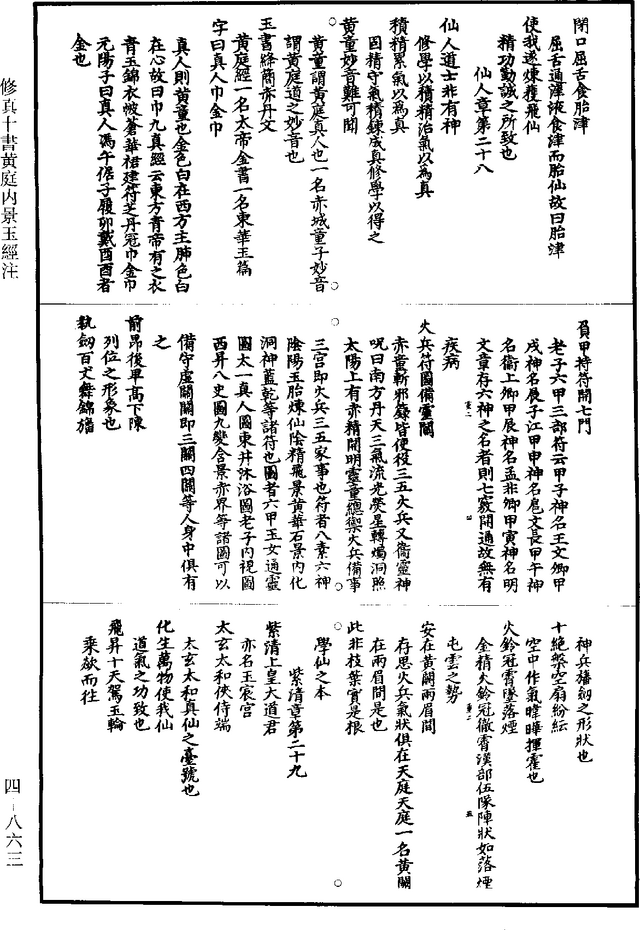 閉口屈舌食胎津
屈舌通津液食津而胎仙故曰胎津
使我遂煉穫飛仙
精功勤誠之所致也
仙人章第二十八
仙人道士非有神
修學以積精治氣以為真
積精累氣以為真
因精守氣積鍊成真修學以得之
黃童妙音難可聞
黃童謂黃庭真人也一名赤城童子妙音
謂黃庭道之妙音也
玉書絳簡赤丹文
黃庭經一名太帝金書一名東華玉篇
字曰真人巾金巾
真人則黃童也金色白在西方主肺色白
在心故曰巾九真經云東方青帝有之衣
青玉錦衣帔蒼華裙建符芝丹冠巾金巾
元陽子曰真人馮午倨子履卯戴酉酉者
金也
負甲持符開七門
老子六甲三部符云甲子神名王文卿甲
戌神名展子江甲申神名扈文長甲午神
名衞上卿甲辰神名孟非卿甲寅神名明
文章存六神之名者則七竅開通故無有
疾病
火兵符圖備靈關
赤童斬邪籙皆使役三五火兵又衞靈神
呪曰南方丹天三氣流光熒星轉燭洞照
太陽上有赤精開明靈童總禦火兵備事
三宮即火兵三五家事也符者八素六神
陰陽玉胎煉仙陰精飛景黃華石景內化
洞神藍乾等諸符也圖者六甲玉女通靈
圖太一真人圖東井沐浴圖老子內視圖
西昇八史圖九變含景赤界等諸圖可以
備守虛關關即三關四關等人身中俱有
之
前昂後卑高下陳
列位之形象也
執劒百丈舞錦旛
神兵旛劒之形狀也
十絶槃空扇紛紜
空中作氣暐曄揮霍也
火鈴冠霄墜落煙
金精火鈴冠徹霄漢部伍隊陣狀如落煙
屯雲之勢
安在黃闕兩眉間
存思火兵氣狀俱在天庭天庭一名黃闕
在兩眉間是也
此非枝葉實是根
學仙之本
紫清章第二十九
紫清上皇大道君
亦名玉宸宮
太玄太和俠侍端
太玄太和真仙之臺號也
化生萬物使我仙
道氣之功致也
飛昇十天駕玉輪
乘欻而往
修真十書黃庭內景玉經注
四－八六三